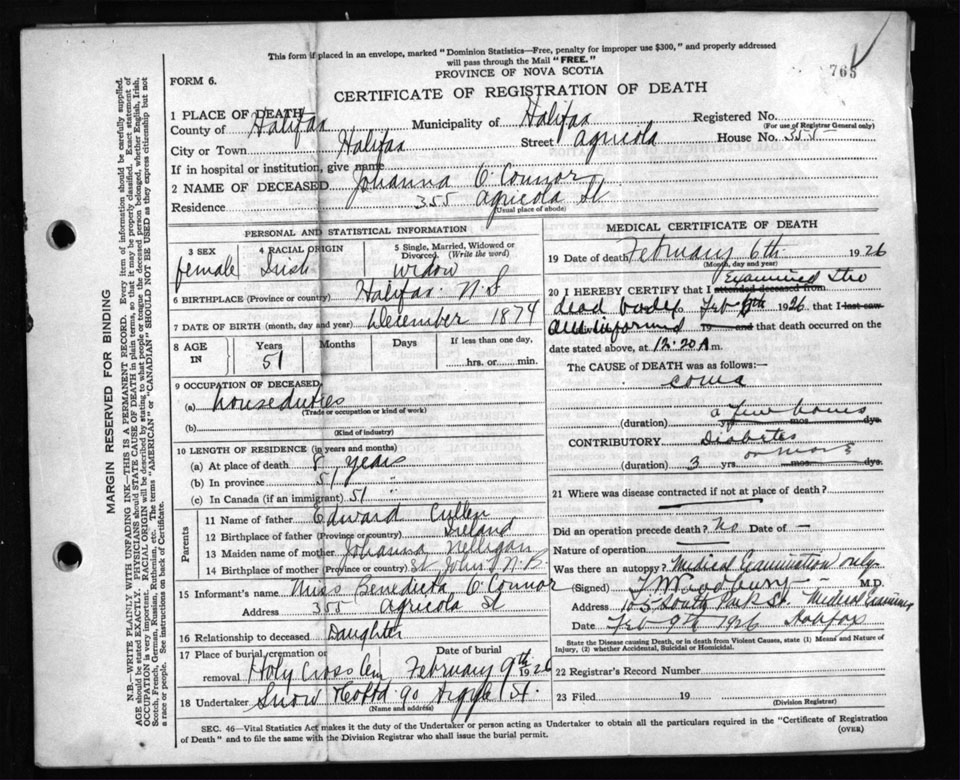 This form if placed in an envelope, marked "Dominion Statistics—Free, penalty for improper use $300," and properly addressed
will pass through the Mail "FREE."
765
FORM 6.
PROVINCE OF NOVA SCOTIA
CERTIFICATE OF REGISTRATION OF DEATH
1 PLACE OF DEATH
County of Halifax Municipality of Halifax Registered No.
(For use of Registrar General only)
City or Town Halifax Street Agricola House No. 355
If in hospital or institution, give name
2 NAME OF DECEASED Johanna O'Connor
Residence 355 Agricola St
(Usual place of abode)
PERSONAL AND STATISTICAL INFORMATION
3 SEX 4 RACIAL ORIGIN 5 Single, Married, Widowed or
Divorced (Write the word)
female Irish widow
6 BIRTHPLACE (Province or country) Halifax N.S
7 DATE OF BIRTH (month, day and year) December 1874
8 AGE IN Years Months Days If less than one day,
51 hrs. or min.
9 OCCUPATION OF DECEASED
(a) houseduties
(Trade or occupation or kind of work)
(b)
(Kind of industry)
10 LENGTH OF RESIDENCE (in years and months)
(a) At place of death 8 years
(b) In province 51 "
(c) In Canada (if an immigrant) 51
Parents
11 Name of father Edward Cullen
12 Birthplace of father (Province or country) Ireland
13 Maiden name of mother Johanna Nelligan
14 Birthplace of mother (Province or country) St. John N.B.
15 Informant's name Miss Benedicta O'Connor
Address 355 Agricola St
16 Relationship to deceased Daughter
17 Place of burial, cremation or Date of burial
removal Holy Cross Cem February 9th 1926
18 Undertaker Snow & Co Ltd. 90 Argyle St.
(Name and address)
MEDICAL CERTIFICATE OF DEATH
19 Date of death February 6th 1926
(Month, day and year)
20 I HEREBY CERTIFY that I attended deceased from Examined the
dead body Feb 6th 1926 that I last saw
and informed 19 and that death occurred on the
date stated above, at 12:20 A m.
The CAUSE of DEATH was as follows:—
coma
(duration) a few hours mos. dys.
CONTRIBUTORY Diabetes
(duration) 3 yrs. or more mos. dys.
21 Where was disease contracted if not at place of death?
Did an operation precede death? No Date of —
Nature of operation
Was there an autopsy? Medical Examination only
(Signed) M.D.
Address 105 South Park St. Medical Examiner
Date Feb 9th 1926 Halifax
State the Disease causing Death, or in death from Violent Causes, state (1) Means and Nature of
Injury, (2) whether Accidental, Suicidal or Homicidal.
22 Registrar's Record Number
23 Filed 19
(Division Registrar)
SEC. 46—Vital Statistics Act makes it the duty of the Undertaker or person acting as Undertaker to obtain all the particulars required in the "Certificate of Registration
of Death" and to file the same with the Division Registrar who shall issue the burial permit.
(OVER)
MARGIN RESERVED FOR BINDING
N.B.—WRITE PLAINLY WITH UNFADING INK—THIS IS A PERMANENT RECORD. Every item of information should be carefully supplied.
AGE should be stated EXACTLY. PHYSICIANS should STATE CAUSE OF DEATH in plain terms, so that it may be properly classified. Exact statement of
OCCUPATION is very important. RACIAL ORIGIN will be described by stating to what people or tongue the deceased person belonged, whether English, Irish,
Scotch, French, German, Russian, Ruthenian, etc. The terms "AMERICAN" or "CANADIAN" SHOULD NOT BE USED as they express citizenship but not
a race or people. See instructions on back of Certificate.